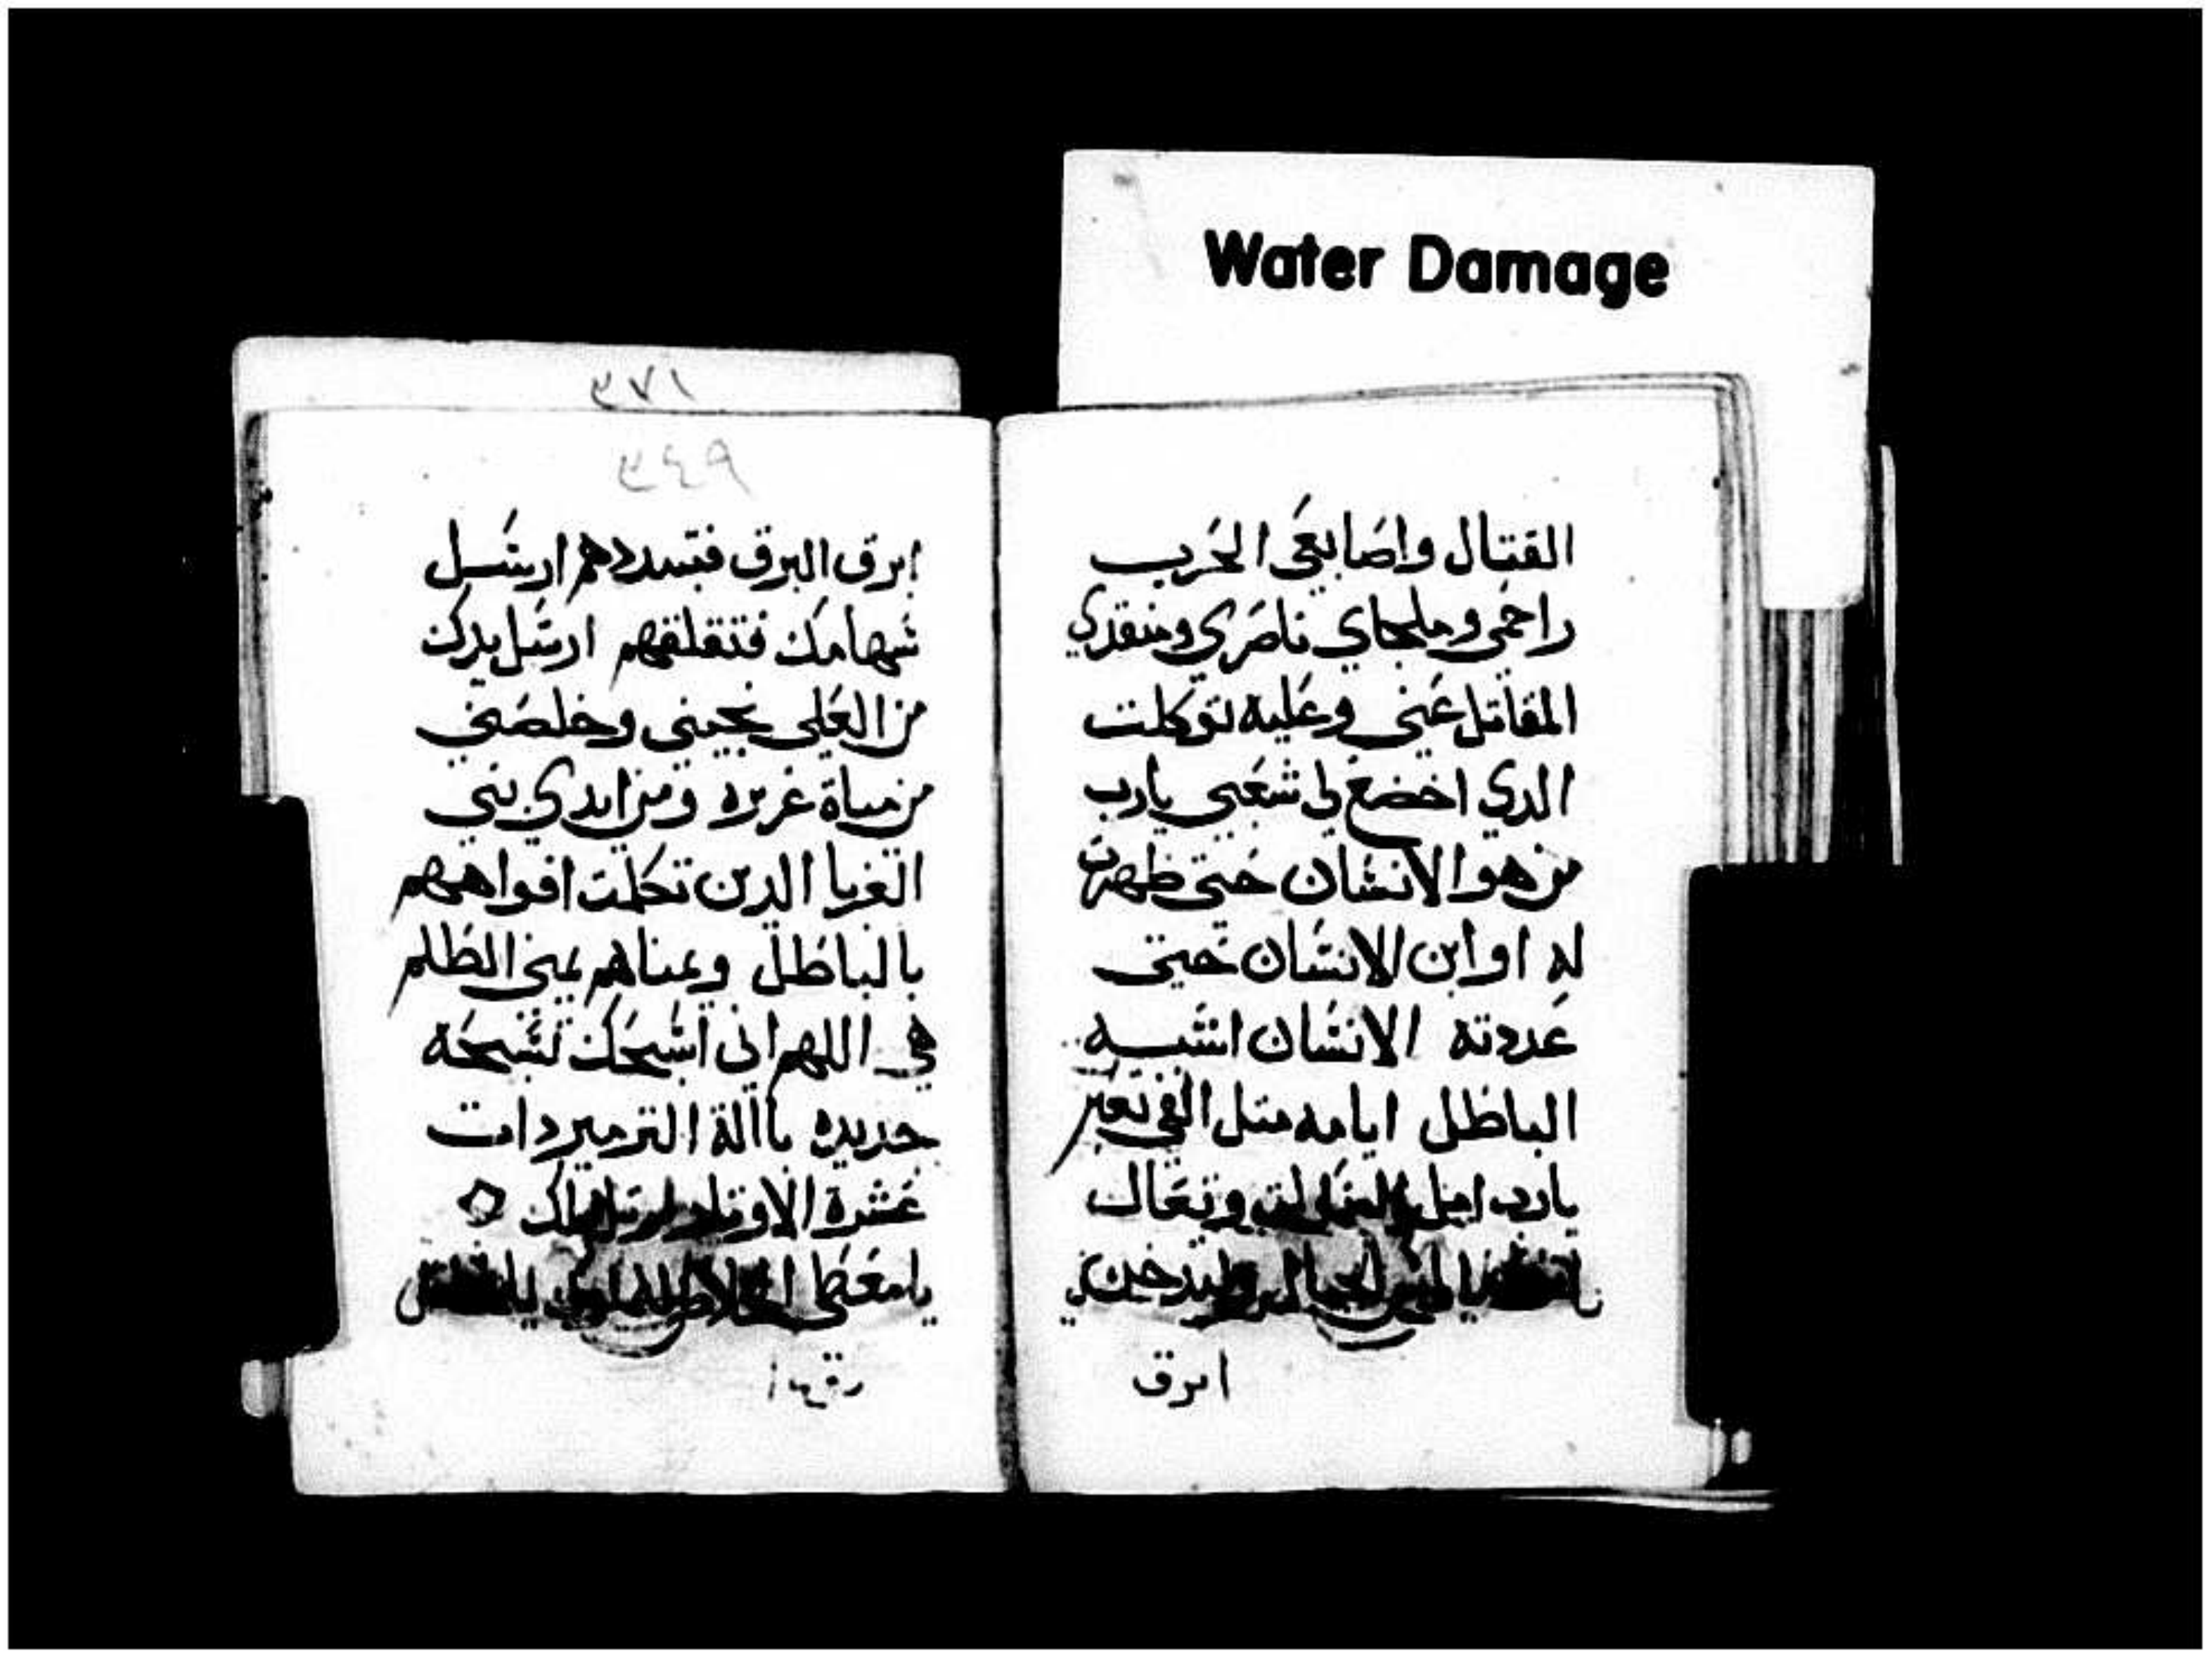 Water Damage
القتال واصابعى الحرب
راحمى وملجاي ناصري ومنقدي
المقاتل عني وعليه توكلت
الدي اخضع لي شعبي يارب
من هو الانسان حتى ظهرت
له او ابن الانسان حتى
عددته الانسان اشبه
الباطل ايامه متل الفي تعبر
يارب اميل وتعال
الجبال فيدخن
ابرق
٣٧١
٣٤٩
ابرق البرق فتبددهم ارسل
سهامك فتقلقهم ارسل يدك
من العلى نجيني وخلصني
من مياة غزيره ومن ايدي بني
الغربا الدين تكلمت افواههم
بالباطل ويمناهم يمين الظلم
هي اللهم اني اسبحك تسبحة
جديده باالة التزمير دات
عشرة الاوتار ارتل لك
يا معطى الخلاص للملوك